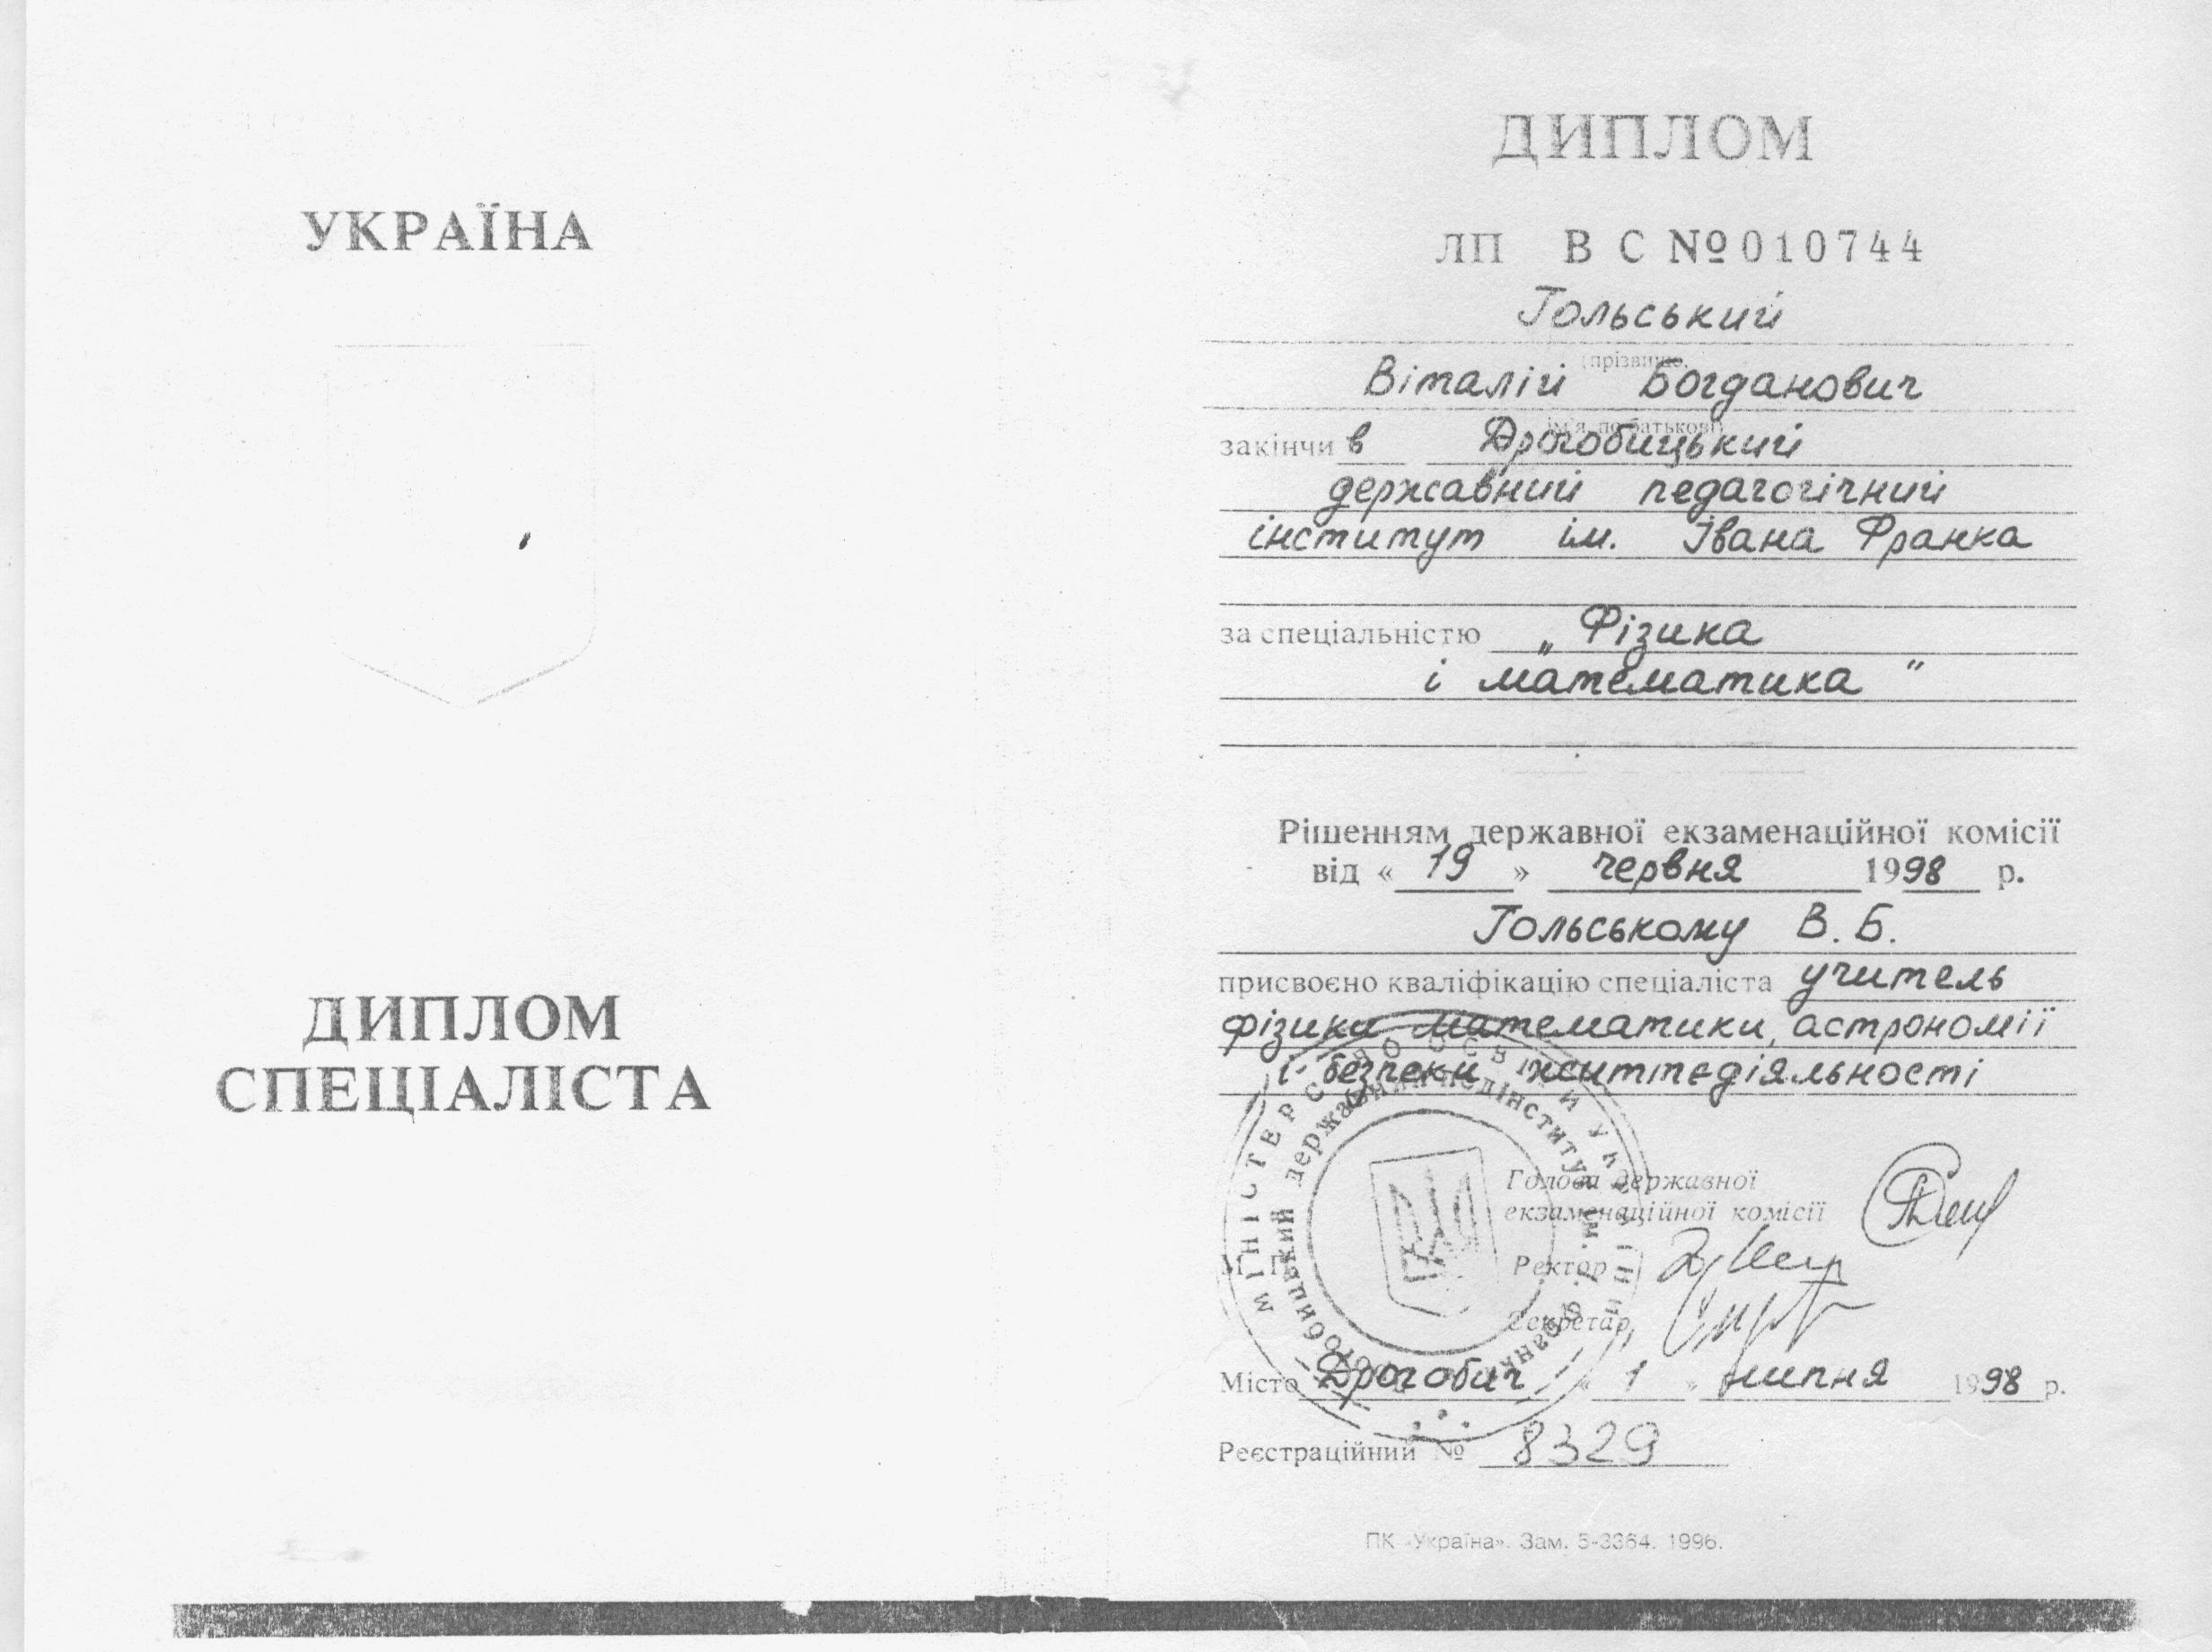 УКРАЇНА
ДИПЛОМ
СПЕЦІАЛІСТА
ДИПЛОМ
ЛП В С №010744
Гольський
(прізвище,
Віталій Богданович
ім'я, по батькові)
закінчив Дрогобицький
державний педагогічний
інститут ім. Івана Франка
за спеціальністю „Фізика
і математика"
Рішенням державної екзаменаційної комісії
від « 19 » червня 1998 р.
Гольському В. Б.
присвоєно кваліфікацію спеціаліста учитель
фізики математики, астрономії
і безпеки життєдіяльності
МІНІСТЕРСТВО ОСВІТИ УКРАЇНИ
Дрогобицький державний педінститут ім. І. Франка
Голова державної
екзаменаційної комісії
М. П.
Ректор
Секретар
Місто Дрогобич « 1 » липня 1998 р.
Реєстраційний № 8329
ПК «Україна». Зам. 5-3364. 1996.